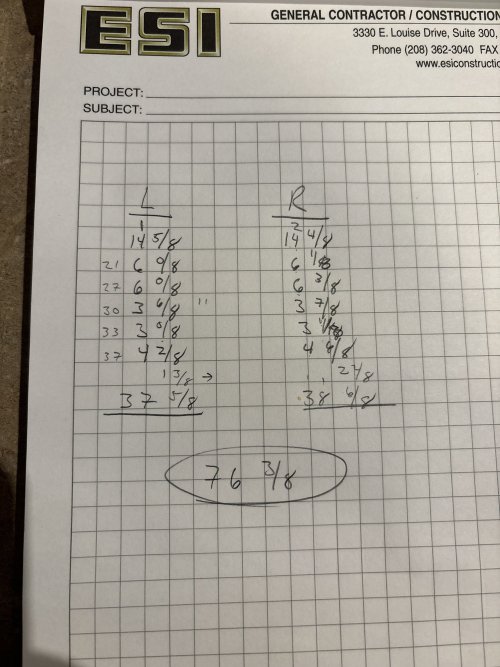 ESI
GENERAL CONTRACTOR / CONSTRUCTION
3330 E. Louise Drive, Suite 300,
Phone (208) 362-3040 FAX
www.esiconstructio
PROJECT:
SUBJECT:
L R
1 2
14 5/8 14 4/8
21 6 0/8 6
27 6 0/8 6 3/8
30 3 6/8 " 3 7/8
33 3 0/8 3
37 4 2/8 4
1 3/8 →
37 5/8 38 6/8
76 3/8